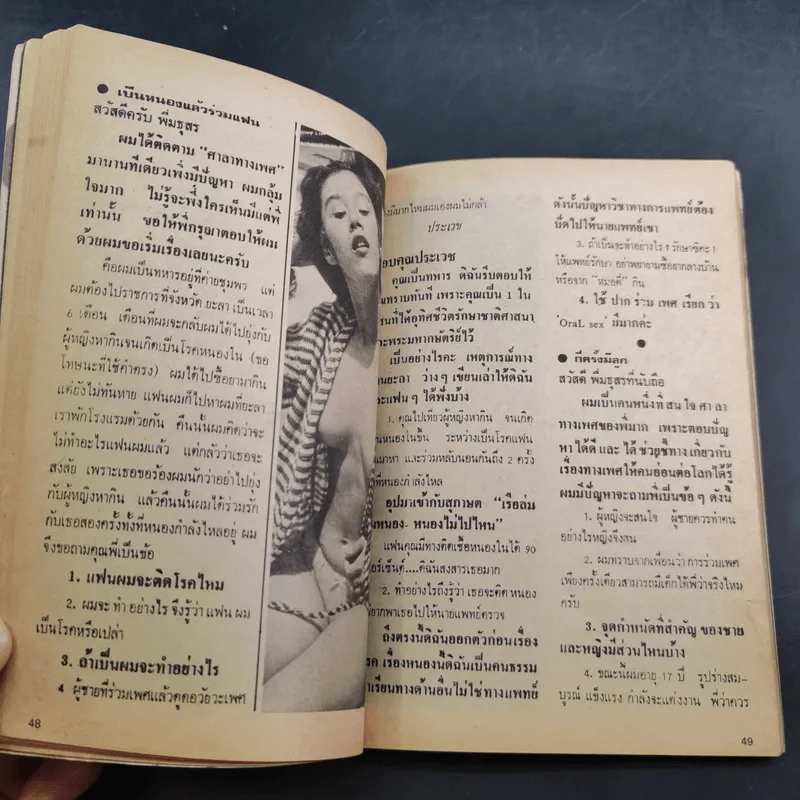 ● เป็นหนองแล้วร่วมแฟน
สวัสดีครับ พี่มธุสร
ผมได้ติดตาม “ศาลาทางเพศ”
มานานทีเดียวเพิ่งมีปัญหา ผมกลุ้ม
ใจมาก ไม่รู้จะพึ่งใครเห็นมีแต่พี่
เท่านั้น ขอให้พี่กรุณาตอบให้ผม
ด้วยผมขอเริ่มเรื่องเลยนะครับ
คือผมเป็นทหารอยู่ที่ค่ายชุมพร แต่
ผมต้องไปราชการที่จังหวัด ยะลา เป็นเวลา
6 เดือน เดือนที่ผมจะกลับผมได้ไปยุ่งกับ
ผู้หญิงหากินจนเกิดเป็นโรคหนองใน (ขอ
โทษนะที่ใช้คำตรง) ผมได้ไปซื้อยามากิน
แต่ยังไม่ทันหาย แฟนผมก็ไปหาผมที่ยะลา
เราพักโรงแรมด้วยกัน คืนนั้นผมคิดว่าจะ
ไม่ทำอะไรแฟนผมแล้ว แต่กลัวว่าเธอจะ
สงสัย เพราะเธอขอร้องผมนักว่าอย่าไปยุ่ง
กับผู้หญิงหากิน แล้วคืนนั้นผมได้ร่วมรัก
กับเธอสองครั้งทั้งที่หนองกำลังไหลอยู่ ผม
จึงขอถามคุณพี่เป็นข้อ
1. แฟนผมจะติดโรคไหม
2. ผมจะ ทำ อย่างไร จึงรู้ว่า แฟน ผม
เป็นโรคหรือเปล่า
3. ถ้าเป็นผมจะทำอย่างไร
4 ผู้ชายที่ร่วมเพศแล้วดูดอวัยวะเพศ
48
มีมากไหมผมเองผมไม่กล้า
ประเวช
อบคุณประเวช
คุณเป็นทหาร ดิฉันรีบตอบให้
ทราบทันที เพราะคุณเป็น 1 ใน
รนที่ได้อุทิศชีวิตรักษาชาติศาสนา
ะพระมหากษัตริย์ไว้
เป็นอย่างไรคะ เหตุการณ์ทาง
ยะลา ว่าง ๆ เขียนเล่าให้ดิฉัน
ะแฟน ๆ ได้ฟังบ้าง
1. คุณไปเที่ยวผู้หญิงหากิน จนเกิด
หนองในขึ้น ระหว่างเป็นโรคแฟน
มาหา และร่วมหลับนอนกันถึง 2 ครั้ง
ที่หนองกำลังไหล
อุปมาเข้ากับสุภาษิต “เรือล่ม
หนอง- หนองไม่ไปไหน”
แฟนคุณมีทางติดเชื้อหนองในได้ 90
อร์เซ็นต์....ดิฉันสงสารเธอมาก
2. ทำอย่างไรถึงรู้ว่า เธอจะติด หนอง
ากพาเธอไปให้นายแพทย์ตรวจ
ถึงตรงนี้ดิฉันออกตัวก่อนเรื่อง
รค เรื่องหนองนี้ดิฉันเป็นคนธรรม
าเรียนทางด้านอื่นไม่ใช่ ทางแพทย์
ดังนั้นปัญหาวิชาทางการแพทย์ต้อง
ยึดไปให้นายแพทย์เขา
3. ถ้าเป็นจะทำอย่างไร ? รักษาซิคะ !
ให้แพทย์รักษา อย่าพยายามซื้อยากลางบ้าน
หรือจาก “หมอตี๋” กิน
4. ใช้ ปาก ร่วม เพศ เรียก ว่า
‘OraL sex’ มีมากค่ะ
●
● กี่ครั้งมีลูก
สวัสดี พี่มธุสรที่นับถือ
ผมเป็นคนหนึ่งที่ สน ใจ ศา ลา
ทางเพศของพี่มาก เพราะตอบปัญ
หา ได้ดี และ ได้ ช่วยชี้ทาง เกี่ยวกับ
เรื่องทางเพศให้คนอ่อนต่อโลกได้รู้
ผมมีปัญหาจะถามพี่เป็นข้อ ๆ ดังนี้
1. ผู้หญิงจะสนใจ ผู้ชายควรทำตน
อย่างไรหญิงจึงสน
2. ผมทราบจากเพื่อนว่า การร่วมเพศ
เพียงครั้งเดียวสามารถมีเด็กได้พี่ว่าจริงไหม
ครับ
3. จุดกำหนัดที่สำคัญ ของชาย
และหญิงมีส่วนไหนบ้าง
4. ขณะนี้ผมอายุ 17 ปี รูปร่างสม-
บูรณ์ แข็งแรง กำลังจะแต่งงาน พี่ว่าควร
49